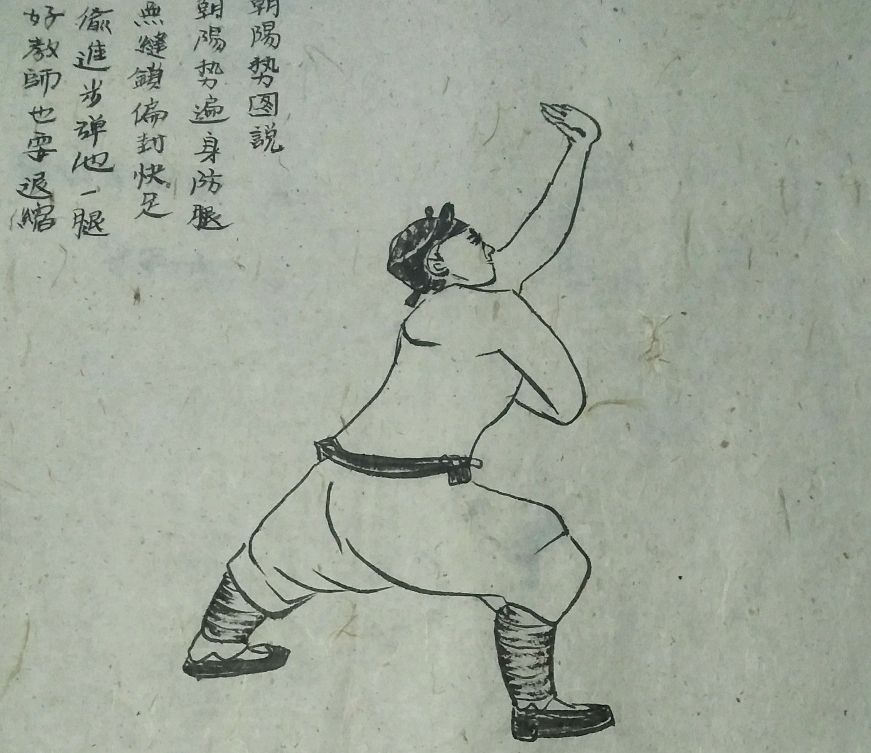 朝陽势图說
朝陽势遍身防腿
無縫鎖偏封快足
偷進步弹他一腿
好教師也要退縮